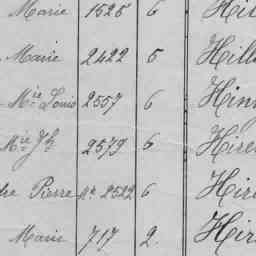 Marie 1525 6 Hil
Marie 2422 5 Hill
Mie Louis 2557 6 Hin
Mie Jh 2579 6 Hire
re Pierre Mn. 2522 6 Hir
Marie 717 2. Hir